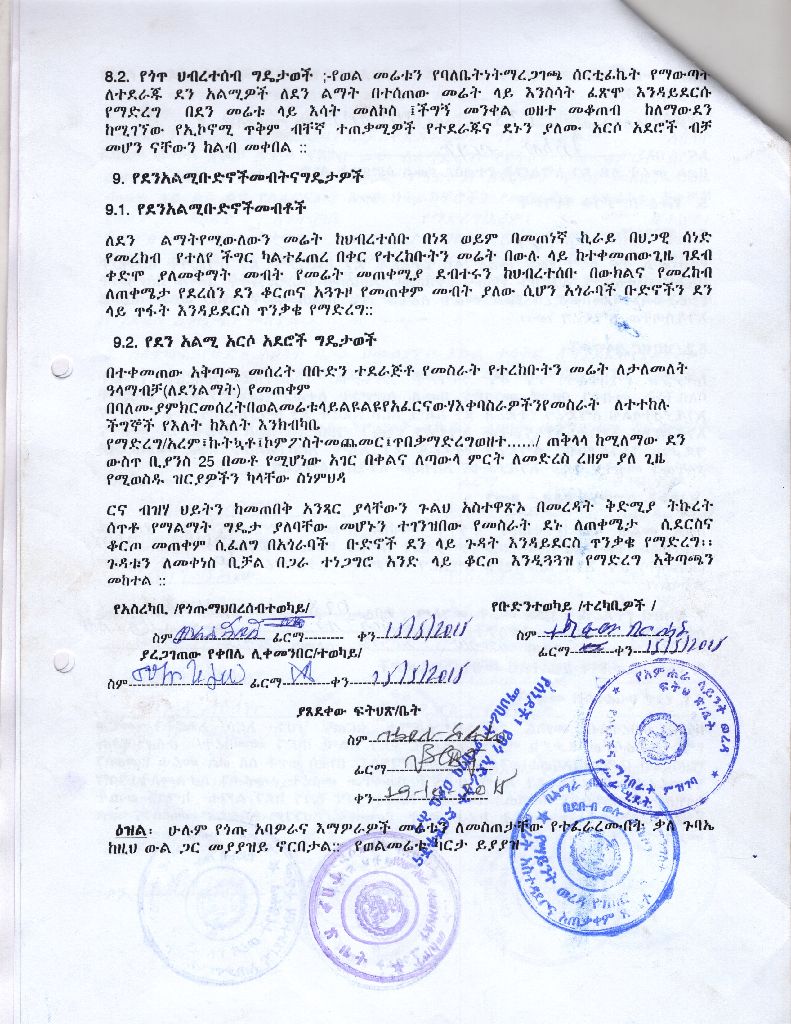 8.2. የጎጥ ህብረተሰብ ግዴታወች ;-የወል መሬቱን የባለቤትነትማረጋገጫ ሰርቲፊኬት የማውጣት
ለተደራጁ ደን አልሚዎች ለደን ልማት በተሰጠው መሬት ላይ እንስሳት ፈጽሞ እንዳይደርሱ
የማድረግ በደን መሬቱ ላይ እሳት መለኮስ ፤ችግኝ መንቀል ወዘተ መቆጠብ ከለማውደን
ከሚገኘው የኢኮኖሚ ጥቅም ብቸኛ ተጠቃሚዎች የተደራጁና ደኑን ያለሙ አርሶ አደሮች ብቻ
መሆን ናቸውን ከልብ መቀበል ::
9. የደንአልሚቡድኖችመብትናግዴታዎች
9.1. የደንአልሚቡድኖችመብቶች
ለደን ልማትየሚውለውን መሬት ከህብረተሰቡ በነጻ ወይም በመጠነኛ ኪራይ በህጋዊ ሰነድ
የመረከብ የተለየ ችግር ካልተፈጠረ በቀር የተረከቡትን መሬት በውሉ ላይ ከተቀመጠውጊዜ ገደብ
ቀድሞ ያለመቀማት መብት የመሬት መጠቀሚያ ደብተሩን ከህብረተሰቡ በውክልና የመረከብ
ለጠቀሜታ የደረሰን ደን ቆርጦና አጓጉዞ የመጠቀም መብት ያለው ሲሆን አጎራባች ቡድኖችን ደን
ላይ ጥፋት እንዳይደርስ ጥንቃቄ የማድረግ::
9.2. የደን አልሚ አርሶ አደሮች ግዴታወች
በተቀመጠው አቅጣጫ መሰረት በቡድን ተደራጅቶ የመስራት የተረከቡትን መሬት ለታለመለት
ዓላማብቻ(ለደንልማት) የመጠቀም
በባለሙያምክርመሰረትበወልመሬቱላይልዩልዩየአፈርናውሃእቀባስራዎችንየመስራት ለተተከሉ
ችግኞች የእለት ከእለት እንክብካቤ
የማድረግ/አረም፤ኩትኳቶ፤ኮምፖስትመጨመር፤ጥበቃማድረግወዘተ....../ ጠቅላላ ከሚለማው ደን
ውስጥ ቢያንስ 25 በመቶ የሚሆነው አገር በቀልና ለጣውላ ምርት ለመድረስ ረዘም ያለ ጊዜ
የሚወስዱ ዝርያዎችን ካላቸው ስነምህዳ
ርና ብዝሃ ህይትን ከመጠበቅ አንጻር ያላቸውን ጉልህ አስተዋጽኦ በመረዳት ቅድሚያ ትኩረት
ሰጥቶ የማልማት ግዴታ ያለባቸው መሆኑን ተገንዝበው የመስራት ደኑ ለጠቀሜታ ሲደርስና
ቆርጦ መጠቀም ሲፈለግ በአጎራባች ቡድኖች ደን ላይ ጉዳት እንዳይደርስ ጥንቃቄ የማድረግ፡፡
ጉዳቱን ለመቀነስ ቢቻል በጋራ ተነጋግሮ አንድ ላይ ቆርጦ እንዲጓጓዝ የማድረግ አቅጣጫን
መከተል ::
የአስረካቢ /የጎጡማህበረሰብተወካይ/ የቡድንተወካይ /ተረካቢዎች /
ስም ፊርማ---------- ቀን 15/5/2015 ስም
ያረጋገጠው የቀበሌ ሊቀመንበር/ተወካይ/ ፊርማ ቀን 15/5/2015
ስም ፊርማ ቀን 15/5/2015
ያጸደቀው ፍትህጽ/ቤት
ስም
ፊርማ
ቀን
ዕዝል፡ ሁሉም የጎጡ አባዎራና እማዎራዎች መሬቱን ለመስጠታቸው የተፈራረሙበት ቃለ ጉባኤ
ከዚህ ውል ጋር መያያዝይ ኖርበታል:: የወልመሬቱ ካርታ ይያያዝ